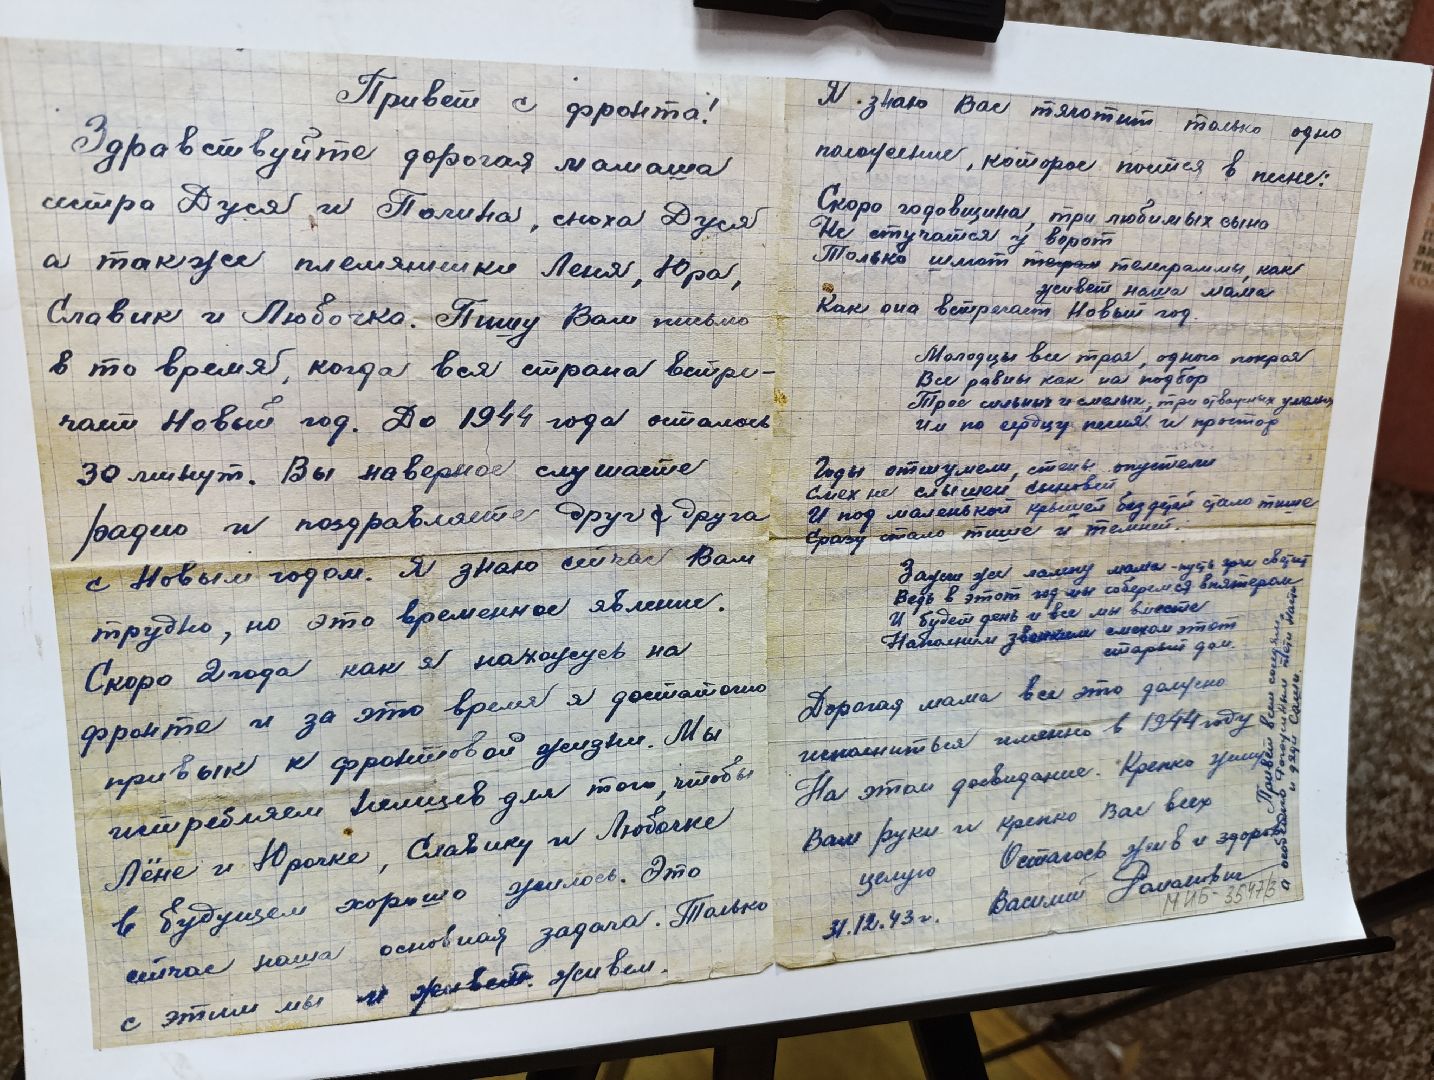 Привет с фронта!
Здравствуйте дорогая мамаша
сестра Дуся и Полина, сноха Дуся
а также племянники Леня, Юра,
Славик и Любочка. Пишу Вам письмо
в то время, когда вся страна встре-
чает Новый год. До 1944 года осталось
30 минут. Вы наверное слушаете
радио и поздравляете друг друга
с Новым годом. Я знаю сейчас Вам
трудно, но это временное явление.
Скоро 2 года как я нахожусь на
фронте и за это время я достаточно
привык к фронтовой жизни. Мы
истребляем немцев для того, чтобы
Лёне и Юрочке, Славику и Любочке
в будущем хорошо жилось. Это
сейчас наша основная задача. Только
с этим мы и живем.
Я знаю Вас тяготит только одно
положение, которое поется в песне:
Скоро годовщина, три любимых сына
Не стучатся у ворот
Только шлют телеграммы, как
живет наша мама
Как она встречает Новый год.
Молодцы все трое, одного покроя
Все равны как на подбор
Трое сильных и смелых, три отважных
Им по сердцу песня и простор
Годы отшумели, стены опустели
Смех не слышен сыновей
И под маленькой крышей без детей стало тише
Сразу стало тише и темней.
Зажги же лампу мама - путь
Ведь в этот год мы соберемся впятером
И будет день и все мы вместе
Наполним звонким смехом этот
старый дом.
Дорогая мама все это должно
исполниться именно в 1944 году
На этом досвидание. Крепко жму
Вам руки и крепко Вас всех
целую Остаюсь жив и здоров
31.12.43 г. Василий Романович
МИБ 3547/3
Привет всем соседям
а особенно
и дяди Саши